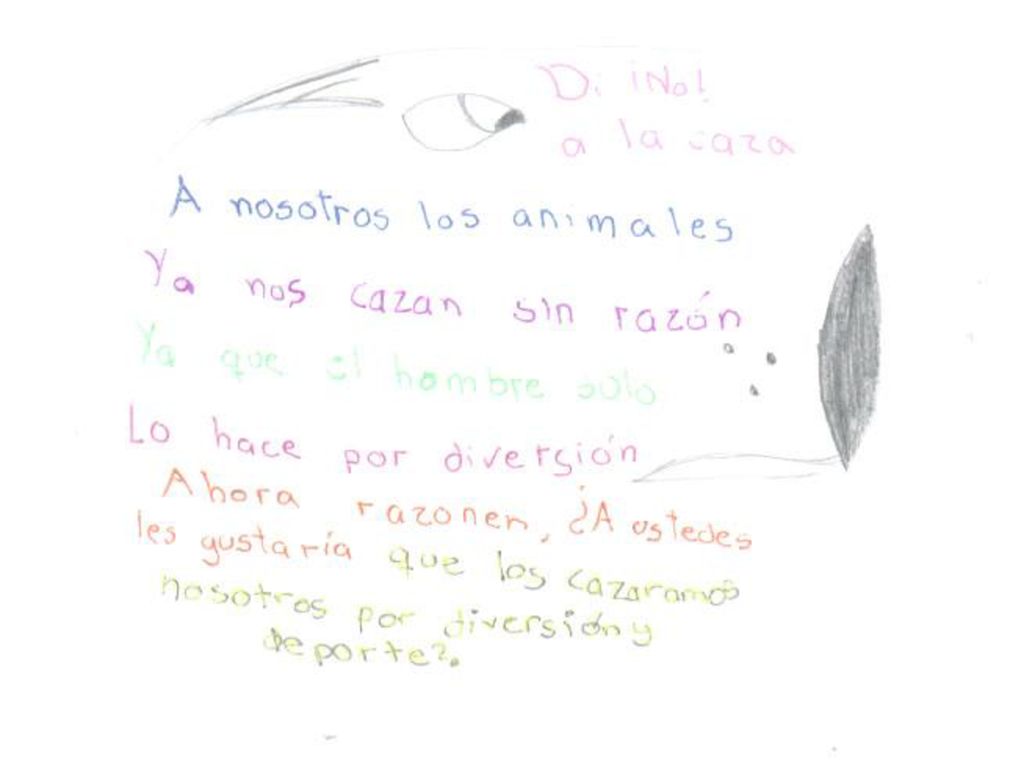 Di ¡No!
a la caza
A nosotros los animales
Ya nos cazan sin razón
Ya que el hombre solo
Lo hace por diversión
Ahora razonen, ¿A ustedes
les gustaría que los cazaramos
nosotros por diversión y
deporte?.